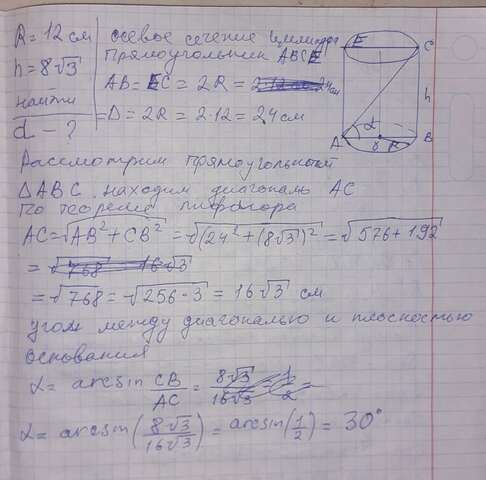 R = 12 см
h = 8√3
найти
d - ?
осевое сечение цилиндра
прямоугольник ABCE
AB = EC = 2R =
= D = 2R = 2·12 = 24 см
E C
h
A α O R B
Рассмотрим прямоугольный
△ABC. находим диагональ AC
по теореме пифагора
AC = √AB² + CB² = √(24² + (8√3)² = √576 + 192
= √768 = 16√3
= √768 = √256·3 = 16√3 см
угол между диагональю и плоскостью
основания
α = arcsin CB/AC = 8√3/16√3 = 1/2 =
α = arcsin(8√3/16√3) = arcsin(1/2) = 30°